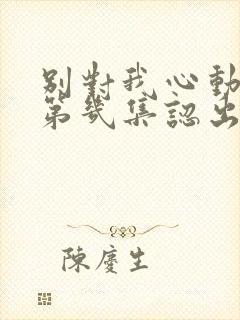 別對我心動
第幾集認出
陳慶生